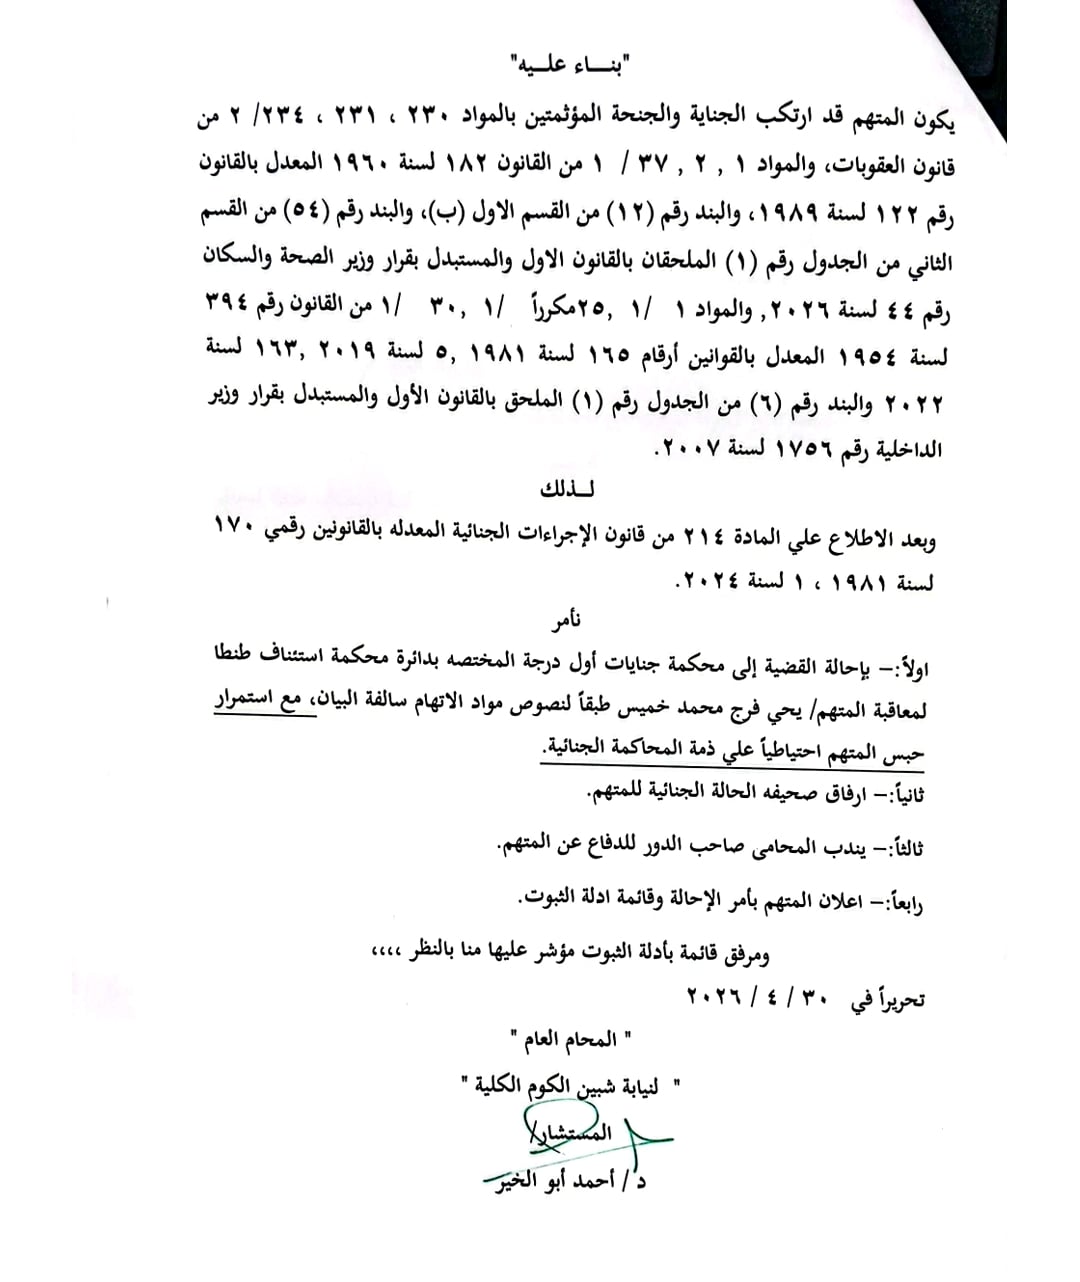 "بنـــاء علـــيه"
يكون المتهم قد ارتكب الجناية والجنحة المؤثمتين بالمواد ٢٣٠ ، ٢٣١ ، ٢٣٤/ ٢ من
قانون العقوبات، والمواد ١ , ٢ , ٣٧ / ١ من القانون ١٨٢ لسنة ١٩٦٠ المعدل بالقانون
رقم ١٢٢ لسنة ١٩٨٩، والبند رقم (١٢) من القسم الاول (ب)، والبند رقم (٥٤) من القسم
الثاني من الجدول رقم (١) الملحقان بالقانون الاول والمستبدل بقرار وزير الصحة والسكان
رقم ٤٤ لسنة ٢٠٢٦, والمواد ١ /١ ,٢٥مكرراً /١ ,٣٠ /١ من القانون رقم ٣٩٤
لسنة ١٩٥٤ المعدل بالقوانين أرقام ١٦٥ لسنة ١٩٨١ ,٥ لسنة ٢٠١٩ ,١٦٣ لسنة
٢٠٢٢ والبند رقم (٦) من الجدول رقم (١) الملحق بالقانون الأول والمستبدل بقرار وزير
الداخلية رقم ١٧٥٦ لسنة ٢٠٠٧.
لــذلك
وبعد الاطلاع علي المادة ٢١٤ من قانون الإجراءات الجنائية المعدله بالقانونين رقمي ١٧٠
لسنة ١٩٨١ ، ١ لسنة ٢٠٢٤.
نأمر
اولاً:– بإحالة القضية إلى محكمة جنايات أول درجة المختصه بدائرة محكمة استئناف طنطا
لمعاقبة المتهم/ يحي فرج محمد خميس طبقاً لنصوص مواد الاتهام سالفة البيان، مع استمرار
حبس المتهم احتياطياً علي ذمة المحاكمة الجنائية.
ثانياً:– ارفاق صحيفه الحالة الجنائية للمتهم.
ثالثاً:– يندب المحامى صاحب الدور للدفاع عن المتهم.
رابعاً:– اعلان المتهم بأمر الإحالة وقائمة ادلة الثبوت.
ومرفق قائمة بأدلة الثبوت مؤشر عليها منا بالنظر ،،،،
تحريراً في ٣٠ / ٤ / ٢٠٢٦
" المحام العام "
" لنيابة شبين الكوم الكلية "
المستشار/
د / أحمد أبو الخير